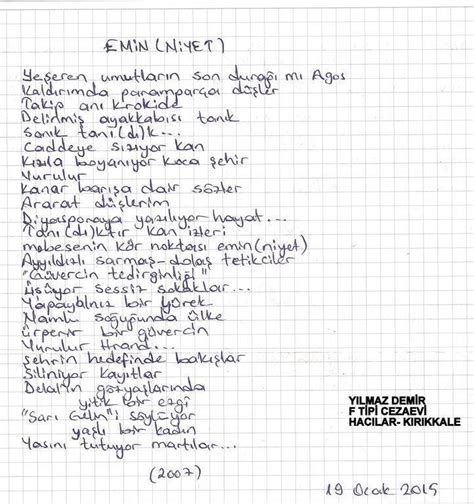 EMİN (NİYET)
Yeşeren umutların son durağı mı Agos
Kaldırımda paramparça düşler
Takip anı krokide
Delinmiş ayakkabısı tanık
Sanık tanı(dı)k...
Caddeye sızıyor kan
Kızıla boyanıyor koca şehir
Vurulur
Kanar barışa dair sözler
Ararat düşlerim
Diyasporaya yazılıyor hayat...
Tanı(dı)ktır kan izleri
mobesenin kör noktası emin(niyet)
Ayyıldızlı sarmaş-dolaş tetikçiler
"Güvercin tedirginliği"
Üşüyor sessiz sokaklar...
Yapayalnız bir yürek
Namlu soğuğunda ülke
ürperir bir güvercin
Vurulur Hrand...
şehrin hedefinde bakışlar
Siliniyor kayıtlar
Delal'ın gözyaşlarında
yitik bir ezgi
"Sarı Gelin"i söylüyor
yaşlı bir kadın
Yasını tutuyor martılar...
(2007)
YILMAZ DEMİR
F TİPİ CEZAEVİ
HACILAR- KIRIKKALE
19 Ocak 2015